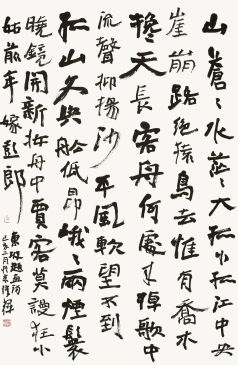 山蒼〻水茫〻大孤小孤江中央
崖崩路絕猿鳥去惟有喬木
攙天長客舟何處來棹歌中
流聲抑揚沙平風軟望不到
孤山久與船低昂峨〻兩煙鬟
曉鏡開新妝舟中賈客莫謾狂小
姑前年嫁彭郎
東坡題畫詩